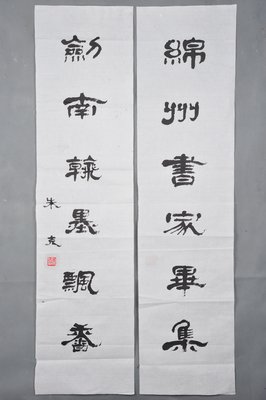 綿州書家畢集
劍南翰墨飄香
朱